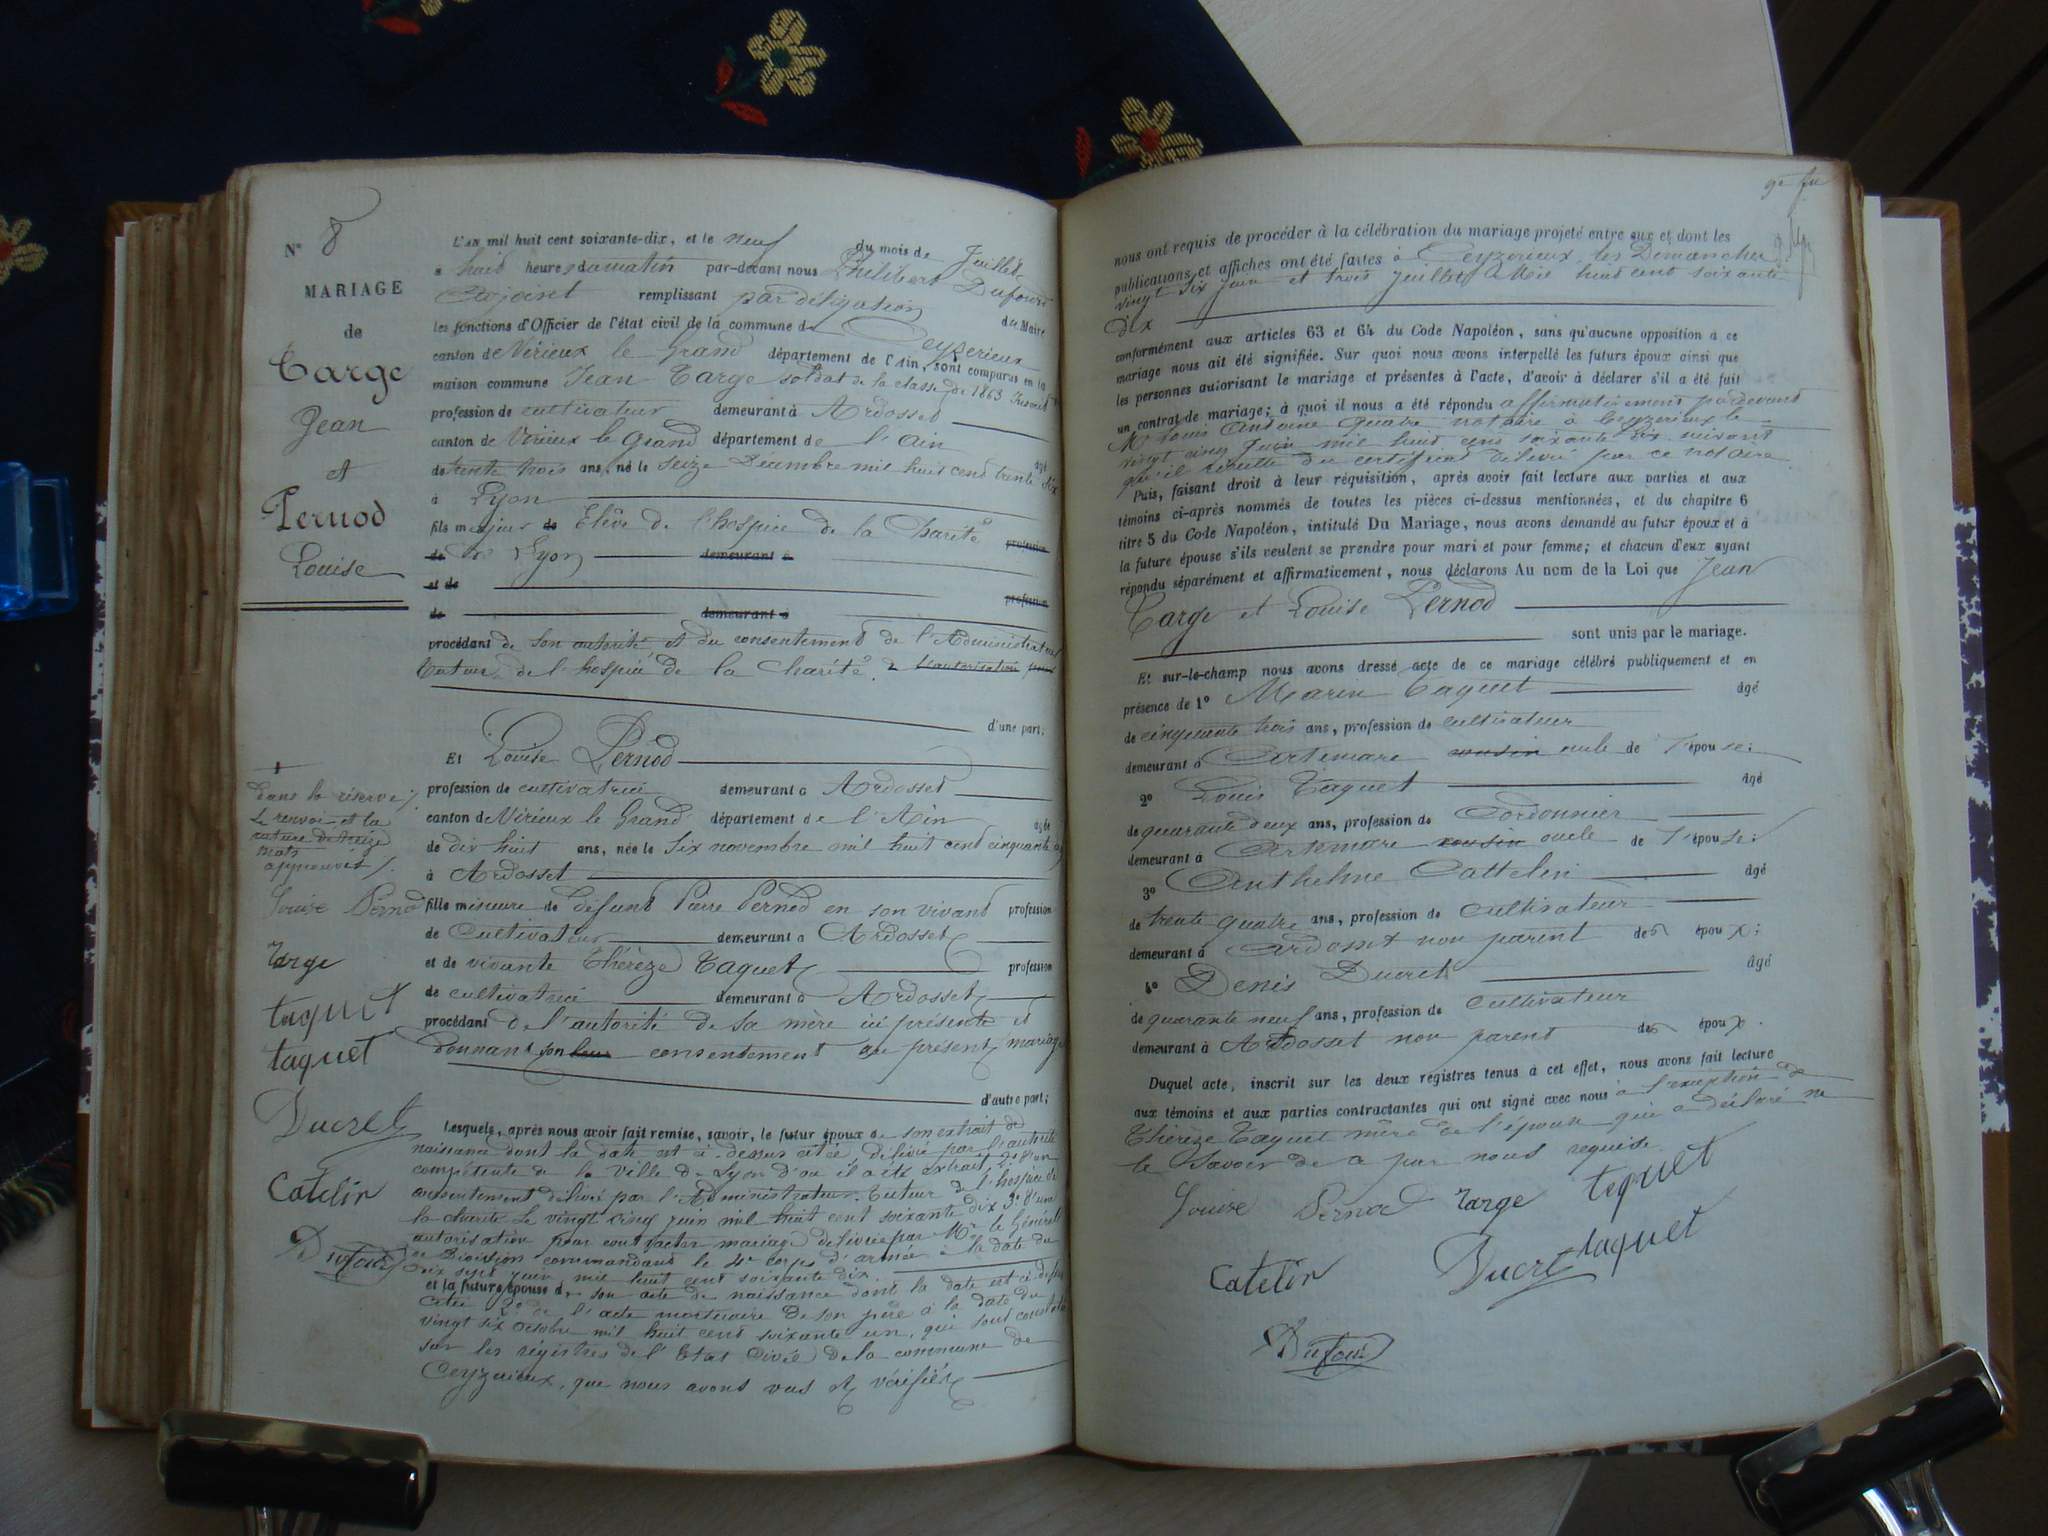 N° 8
MARIAGE
de
Targe
Jean
et
Pernod
Louise
L'AN mil huit cent soixante-dix, et le neuf du mois de Juillet
à huit heures du matin par-devant nous Philibert Dufour
adjoint remplissant par délégation du Maire
les fonctions d'Officier de l'état civil de la commune de Ceyzerieux
canton de Virieux le Grand département de l'Ain, sont comparus en la
maison commune Jean Targe soldat de la classe de 1863
profession de cultivateur demeurant à Ardosset
canton de Virieux le Grand département de l'Ain âgé
de trente trois ans, né le seize Décembre mil huit cent trente six
à Lyon
fils majeur de Elève de l'hospice de la Charité profession
de de Lyon demeurant à
et de profession
de demeurant à
procédant de son autorité et du consentement de l'Administrateur
Tuteur de l'hospice de la Charité. & l'autorisation
d'une part;
Et Louise Pernod
profession de cultivatrice demeurant à Ardosset
canton de Virieux le Grand département de l'Ain âgée
de dix huit ans, née le Six novembre mil huit cent cinquante
à Ardosset
fille mineure de defunt Pierre Pernod en son vivant profession
de Cultivateur demeurant à Ardosset
et de vivante Thérèze Taquet profession
de cultivatrice demeurant à Ardosset
procédant de l'autorité de sa mère ici présente et
donnant son leur consentement au présent mariage
d'autre part;
Lesquels, après nous avoir fait remise, savoir, le futur époux de son extrait de
naissance dont la date est ci-dessus citée, délivré par l'autorité
compétente de la ville de Lyon d'où il a été extrait, 2° d'un
consentement délivré par l'Administrateur Tuteur de l'hospice de
la charité le vingt cinq juin mil huit cent soixante dix 3° d'une
autorisation pour contracter mariage délivrée par Mr le Général
de Division commandant le 4e corps d'armée à la date du
dix sept juin mil huit cent soixante dix
et la future épouse de son acte de naissance dont la date est ci-dessus
citée 2° de l'acte mortuaire de son père à la date du
vingt six octobre mil huit cent soixante un, qui sont constatés
sur les registres de l'Etat Civil de la commune de
Ceyzerieux, que nous avons vus et vérifiés
dans la réserve
Le renvoi et la
rature de treize
mots
approuvés
Louise Pernod
Targe
taquet
taquet
Ducret
Catelin
Dufour
nous ont requis de procéder à la célébration du mariage projeté entre eux et dont les
publications et affiches ont été faites à Ceyzerieux les Dimanches
vingt Six Juin et trois Juillet Mil huit cent soixante
dix
conformément aux articles 63 et 64 du Code Napoléon, sans qu'aucune opposition à ce
mariage nous ait été signifiée. Sur quoi nous avons interpellé les futurs époux ainsi que
les personnes autorisant le mariage et présentes à l'acte, d'avoir à déclarer s'il a été fait
un contrat de mariage; à quoi il nous a été répondu affirmativement pardevant
Me Louis Antoine notaire à Ceyzerieux le
vingt cinq Juin mil huit cent soixante dix suivant
qu'il résulte du certificat délivré par ce notaire
Puis, faisant droit à leur réquisition, après avoir fait lecture aux parties et aux
témoins ci-après nommés de toutes les pièces ci-dessus mentionnées, et du chapitre 6
titre 5 du Code Napoléon, intitulé Du Mariage, nous avons demandé au futur époux et à
la future épouse s'ils veulent se prendre pour mari et pour femme; et chacun d'eux ayant
répondu séparément et affirmativement, nous déclarons Au nom de la Loi que Jean
Targe et Louise Pernod
sont unis par le mariage.
Et sur-le-champ nous avons dressé acte de ce mariage célébré publiquement et en
présence de 1° Marin Taquet âgé
de cinquante trois ans, profession de cultivateur
demeurant à Artemare cousin oncle de l'épouse;
2° Louis Taquet âgé
de quarante deux ans, profession de Cordonnier
demeurant à Artemare cousin oncle de l'épouse;
3° Anthelme Cattelin âgé
de trente quatre ans, profession de Cultivateur
demeurant à Ardosset non parent des époux;
4° Denis Ducret âgé
de quarante neuf ans, profession de Cultivateur
demeurant à Ardosset non parent des époux.
Duquel acte, inscrit sur les deux registres tenus à cet effet, nous avons fait lecture
aux témoins et aux parties contractantes qui ont signé avec nous à l'exception de
Thérèze Taquet mère de l'épouse qui a déclaré ne
le savoir de ce par nous requise
Louise Pernod Targe taquet
Catelin Ducret taquet
Dufour